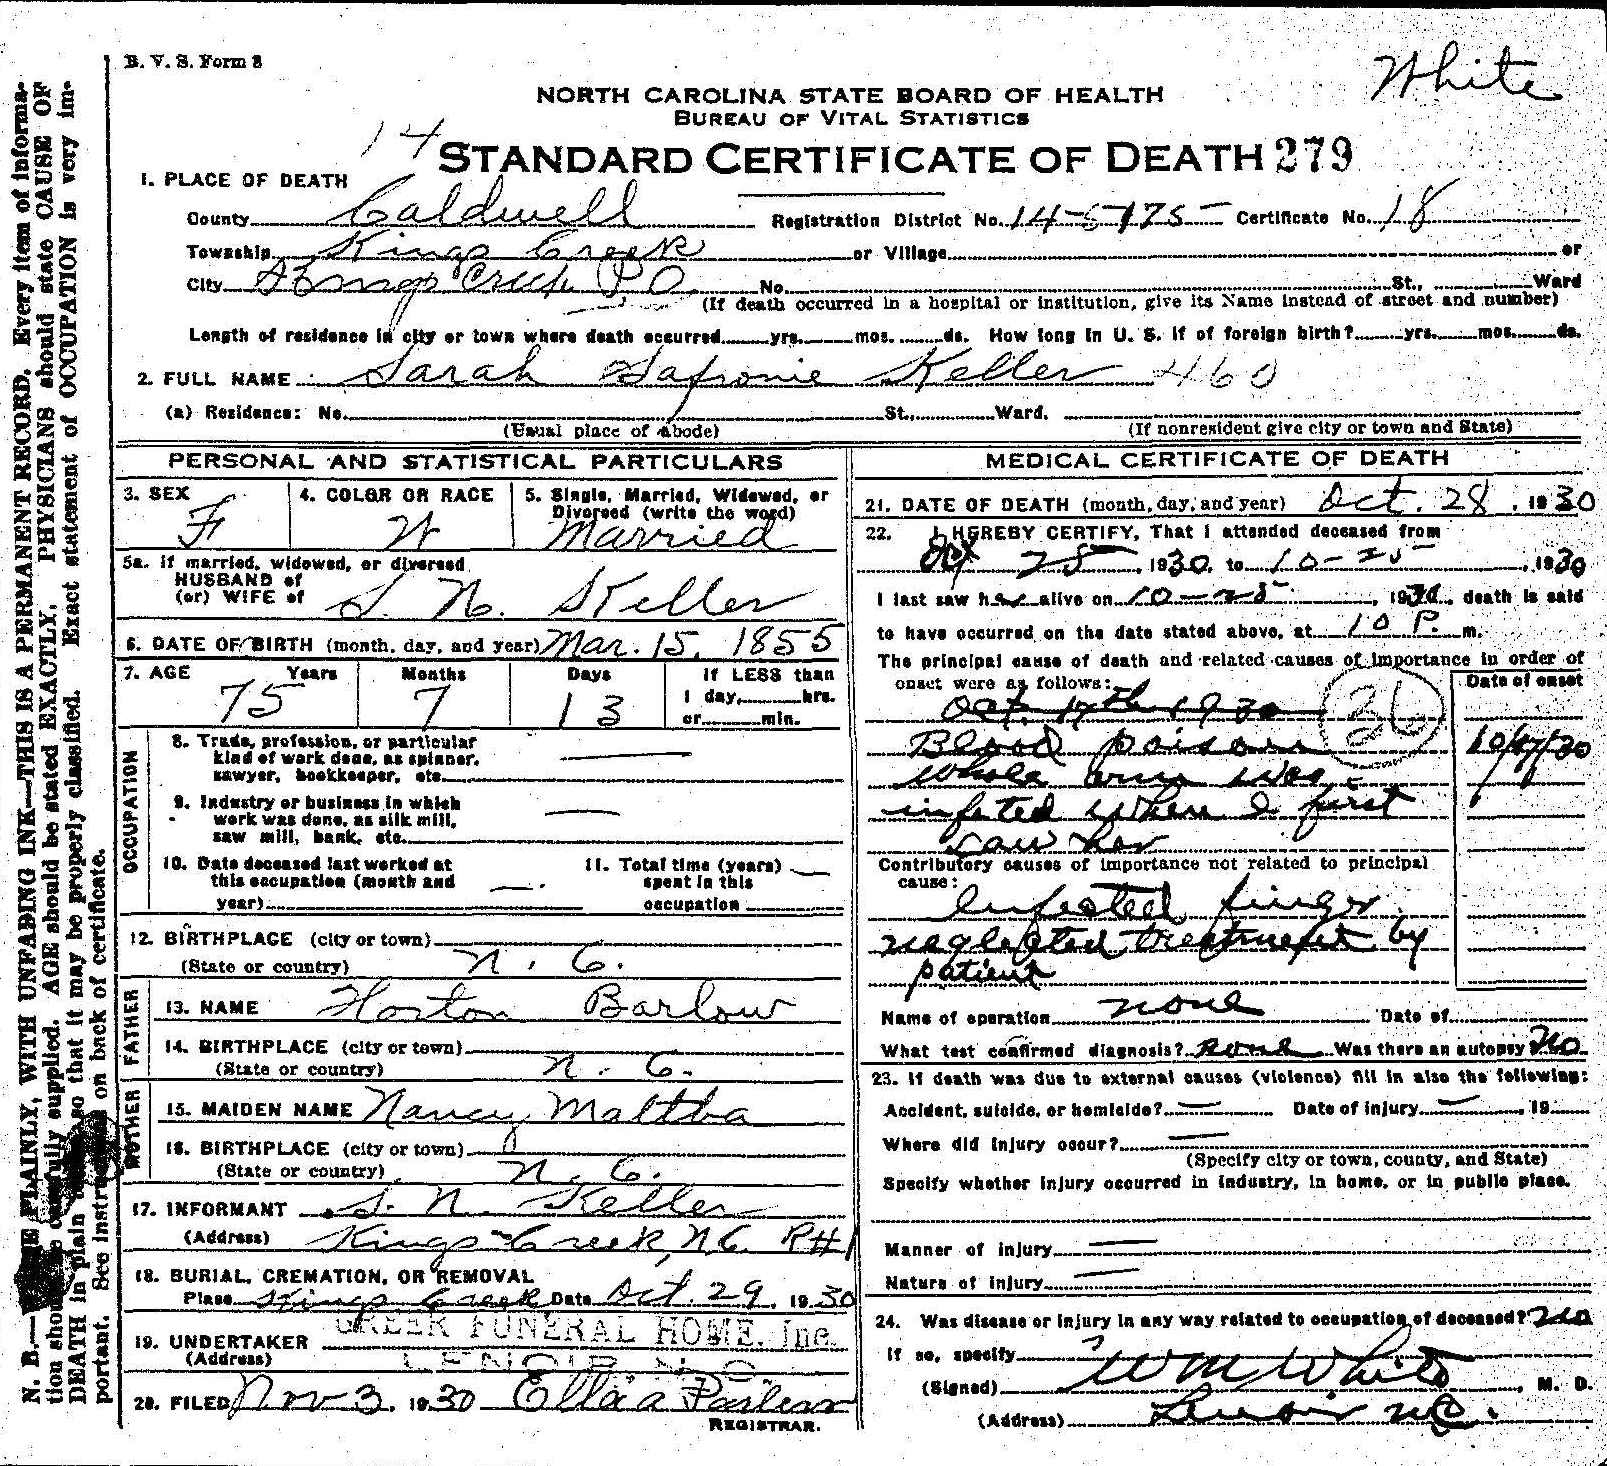 B. V. S. Form 8
White
NORTH CAROLINA STATE BOARD OF HEALTH
BUREAU OF VITAL STATISTICS
14
STANDARD CERTIFICATE OF DEATH 279
1. PLACE OF DEATH
County Caldwell Registration District No. 14-5175- Certificate No. 18
Township Kings Creek or Village or
City Kings Creek P O No. St., Ward
(If death occurred in a hospital or institution, give its Name instead of street and number)
Length of residence in city or town where death occurred yrs. mos. ds. How long in U. S. if of foreign birth? yrs. mos. ds.
2. FULL NAME Sarah Safronie Keller 460
(a) Residence: No. St., Ward.
(Usual place of abode) (If nonresident give city or town and State)
PERSONAL AND STATISTICAL PARTICULARS
3. SEX F
4. COLOR OR RACE W
5. Single, Married, Widowed, or
Divorced (write the word)
Married
5a. If married, widowed, or divorced
HUSBAND of
(or) WIFE of S. N. Keller
6. DATE OF BIRTH (month, day, and year) Mar. 15, 1855
7. AGE Years Months Days If LESS than
75 7 13 1 day, hrs.
or min.
OCCUPATION
8. Trade, profession, or particular
kind of work done, as spinner,
sawyer, bookkeeper, etc. —
9. Industry or business in which
work was done, as silk mill,
saw mill, bank, etc. —
10. Date deceased last worked at
this occupation (month and
year) —
11. Total time (years)
spent in this
occupation —
12. BIRTHPLACE (city or town)
(State or country) N. C.
FATHER
13. NAME Horton Barlow
14. BIRTHPLACE (city or town)
(State or country) N. C.
MOTHER
15. MAIDEN NAME Nancy Maltba
16. BIRTHPLACE (city or town)
(State or country) N. C.
17. INFORMANT S. N. Keller
(Address) Kings Creek, N.C. R#1
18. BURIAL, CREMATION, OR REMOVAL
Place Kings Creek Date Oct. 29, 1930
19. UNDERTAKER GREER FUNERAL HOME, Inc.
(Address) LENOIR N. C.
20. FILED Nov 3, 1930 Ella a
REGISTRAR.
MEDICAL CERTIFICATE OF DEATH
21. DATE OF DEATH (month, day, and year) Oct. 28, 1930
22. I HEREBY CERTIFY, That I attended deceased from
Oct 25, 1930, to 10-25, 1930
I last saw her alive on 10-25, 1930, death is said
to have occurred on the date stated above, at 10 P. m.
The principal cause of death and related causes of importance in order of
onset were as follows: Date of onset
Oct. 17th 1930 36
Blood poison 10/17/30
whole arm was
infected when I first
saw her
Contributory causes of importance not related to principal
cause:
Infected finger
neglected treatment by
patient
Name of operation none Date of
What test confirmed diagnosis? none Was there an autopsy no
23. If death was due to external causes (violence) fill in also the following:
Accident, suicide, or homicide? — Date of injury —, 19
Where did injury occur? —
(Specify city or town, county, and State)
Specify whether injury occurred in industry, in home, or in public place.
Manner of injury —
Nature of injury —
24. Was disease or injury in any way related to occupation of deceased? no
If so, specify
(Signed) Wm White, M. D.
(Address) Lenoir NC.
N. B.—WRITE PLAINLY, WITH UNFADING INK—THIS IS A PERMANENT RECORD. Every item of informa-
tion should be carefully supplied. AGE should be stated EXACTLY. PHYSICIANS should state CAUSE OF
DEATH in plain so that it may be properly classified. Exact statement of OCCUPATION is very im-
portant. See instructions on back of certificate.